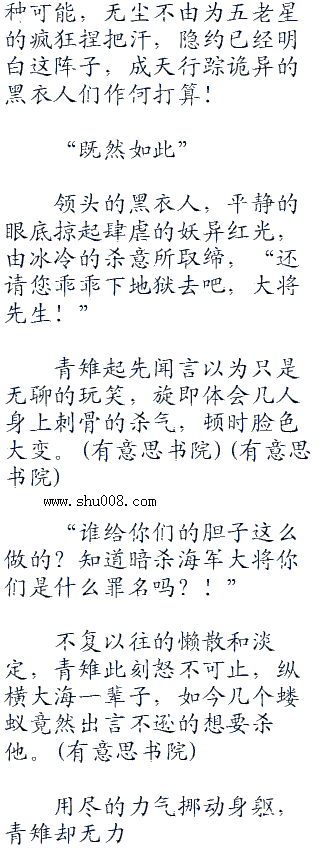 种可能，无尘不由为五老星
的疯狂捏把汗，隐约已经明
白这阵子，成天行踪诡异的
黑衣人们作何打算！
“既然如此”
领头的黑衣人，平静的
眼底掠起肆虐的妖异红光，
由冰冷的杀意所取缔，“还
请您乖乖下地狱去吧，大将
先生！”
青雉起先闻言以为只是
无聊的玩笑，旋即体会几人
身上刺骨的杀气，顿时脸色
大变。(有意思书院)(有意思
书院)
www.shu008.com
“谁给你们的胆子这么
做的？知道暗杀海军大将你
们是什么罪名吗？！”
不复以往的懒散和淡
定，青雉此刻怒不可止，纵
横大海一辈子，如今几个蝼
蚁竟然出言不逊的想要杀
他。(有意思书院)
用尽的力气挪动身躯，
青雉却无力